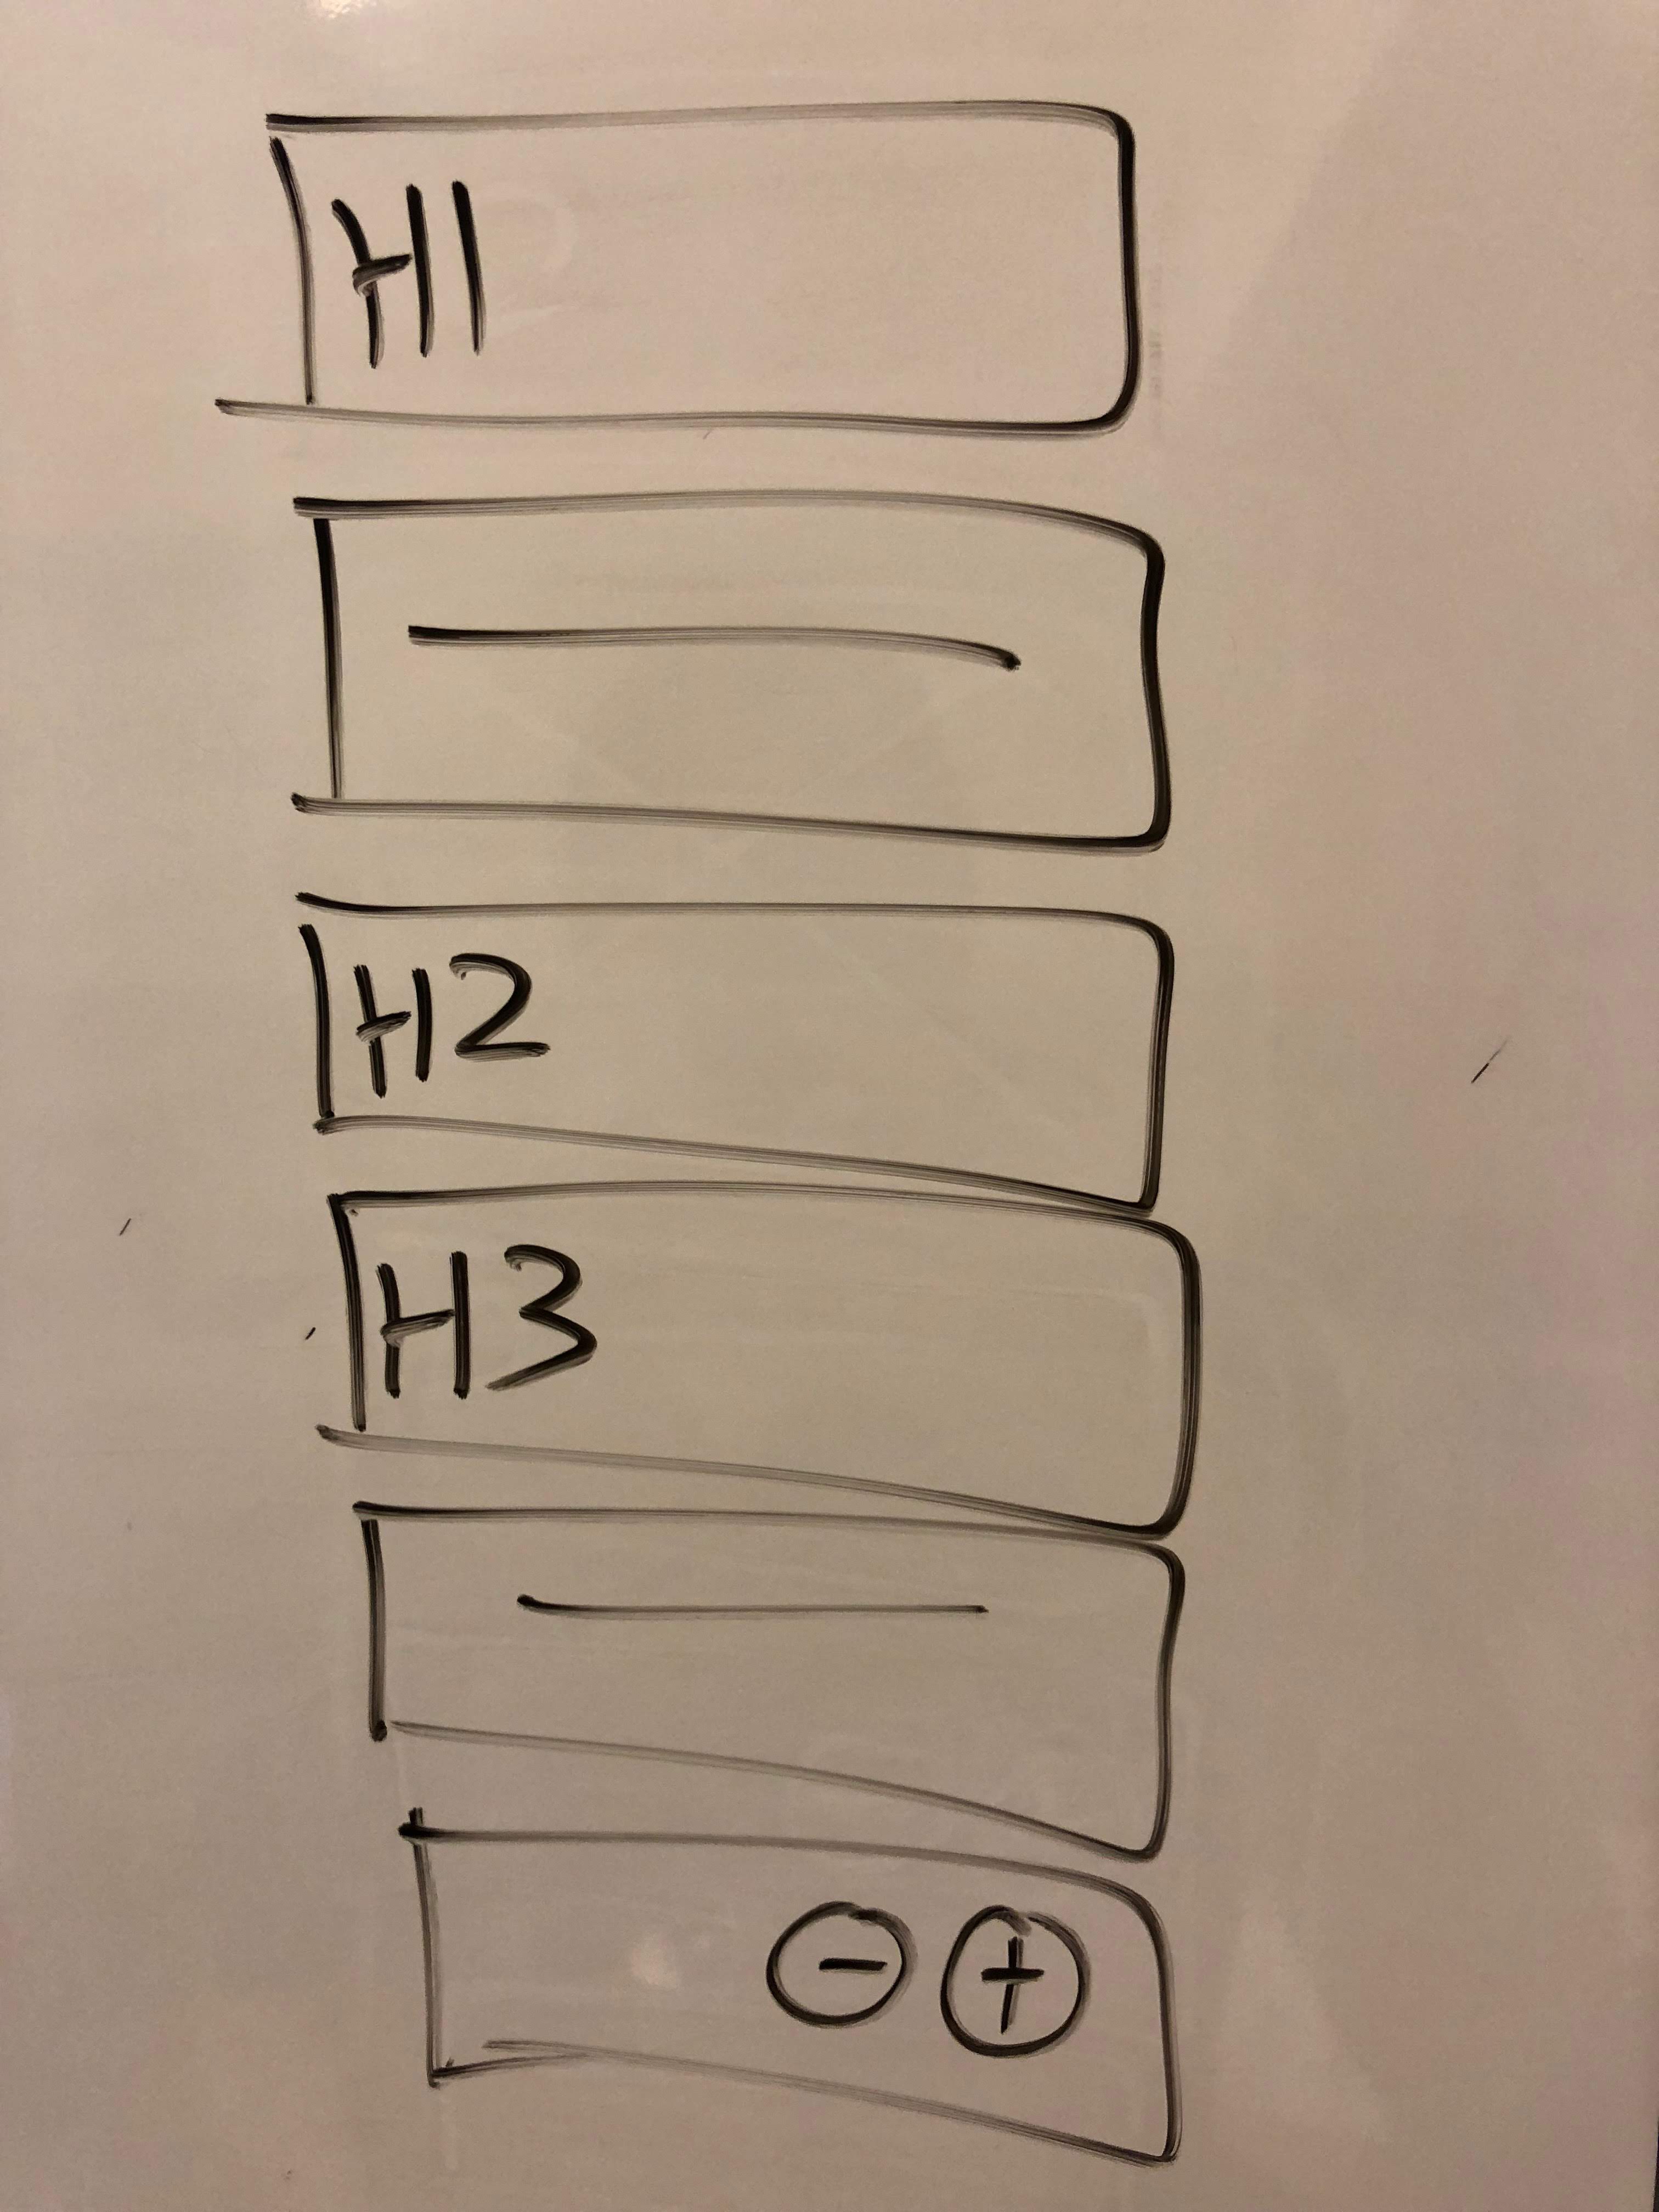 H1
H2
H3
- +